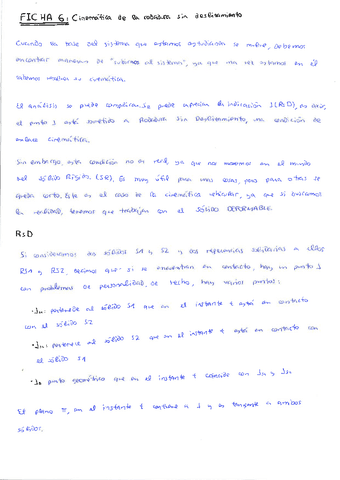 FICHA 6: Cinemática de la rodadura sin deslizamiento
Cuando la base del sistema que estamos estudiando se mueve, debemos
encontrar maneras de "subirnos al sistema", ya que una vez estamos en él
sabemos resolver su cinemática.
El análisis se puede complicar. Se puede apreciar la indicación J(RsD), es decir,
el punto J está sometido a Rodadura Sin Deslizamiento, una condición de
enlace cinemática.
Sin embargo, esta condición no es real, ya que nos movemos en el mundo
del Sólido Rígido (SR). Es muy útil para unas cosas, pero para otras se
queda corto. Este es el caso de la cinemática vehicular, ya que si buscamos
la realidad, tenemos que trabajar con el SÓLIDO DEFORMABLE.
RsD
Si consideramos dos sólidos S1 y S2 y dos referencias solidarias a ellos
RS1 y RS2, decimos que si se encuentran en contacto, hay un punto J
con problemas de personalidad, de hecho, hay varios puntos:
: pertenece al sólido S1 que en el instante t está en contacto
con el sólido S2
: pertenece al sólido S2 que en el instante t está en contacto con
el sólido S1
punto geométrico que en el instante t coincide con
El plano π, en el instante t contiene a J y es tangente a ambos
sólidos.